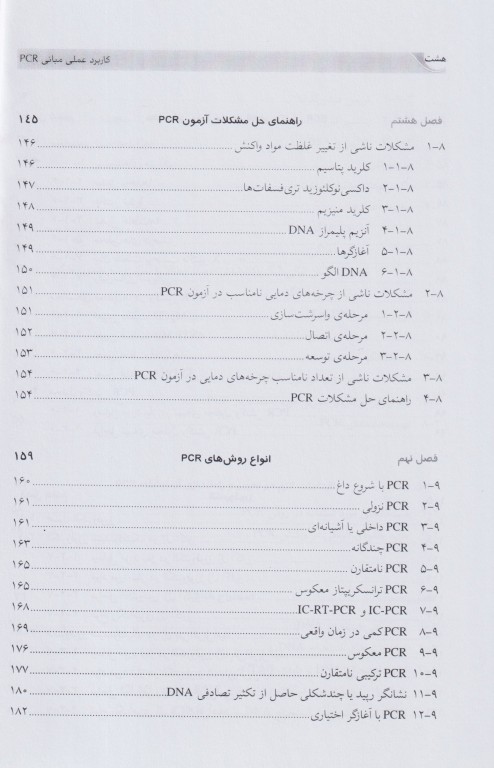 هشت
کاربرد عملی مبانی PCR
فصل هشتم راهنمای حل مشکلات آزمون PCR ۱۴۵
۸-۱ مشکلات ناشی از تغییر غلظت مواد واکنش ۱۴۶
۸-۱-۱ کلرید پتاسیم ۱۴۶
۸-۱-۲ داکسی‌نوکلئوزید تری‌فسفات‌ها ۱۴۷
۸-۱-۳ کلرید منیزیم ۱۴۸
۸-۱-۴ آنزیم پلیمراز DNA ۱۴۹
۸-۱-۵ آغازگرها ۱۴۹
۸-۱-۶ DNA الگو ۱۵۰
۸-۲ مشکلات ناشی از چرخه‌های دمایی نامناسب در آزمون PCR ۱۵۱
۸-۲-۱ مرحله‌ی واسرشت‌سازی ۱۵۱
۸-۲-۲ مرحله‌ی اتصال ۱۵۲
۸-۲-۳ مرحله‌ی توسعه ۱۵۳
۸-۳ مشکلات ناشی از تعداد نامناسب چرخه‌های دمایی در آزمون PCR ۱۵۴
۸-۴ راهنمای حل مشکلات PCR ۱۵۴
فصل نهم انواع روش‌های PCR ۱۵۹
۹-۱ PCR با شروع داغ ۱۶۰
۹-۲ PCR نزولی ۱۶۱
۹-۳ PCR داخلی یا آشیانه‌ای ۱۶۱
۹-۴ PCR چندگانه ۱۶۳
۹-۵ PCR نامتقارن ۱۶۵
۹-۶ PCR ترانسکریپتاز معکوس ۱۶۵
۹-۷ IC-PCR و IC-RT-PCR ۱۶۸
۹-۸ PCR کمی در زمان واقعی ۱۶۹
۹-۹ PCR معکوس ۱۷۶
۹-۱۰ PCR ترکیبی نامتقارن ۱۷۷
۹-۱۱ نشانگر رپید یا چندشکلی حاصل از تکثیر تصادفی DNA ۱۸۰
۹-۱۲ PCR با آغازگر اختیاری ۱۸۲